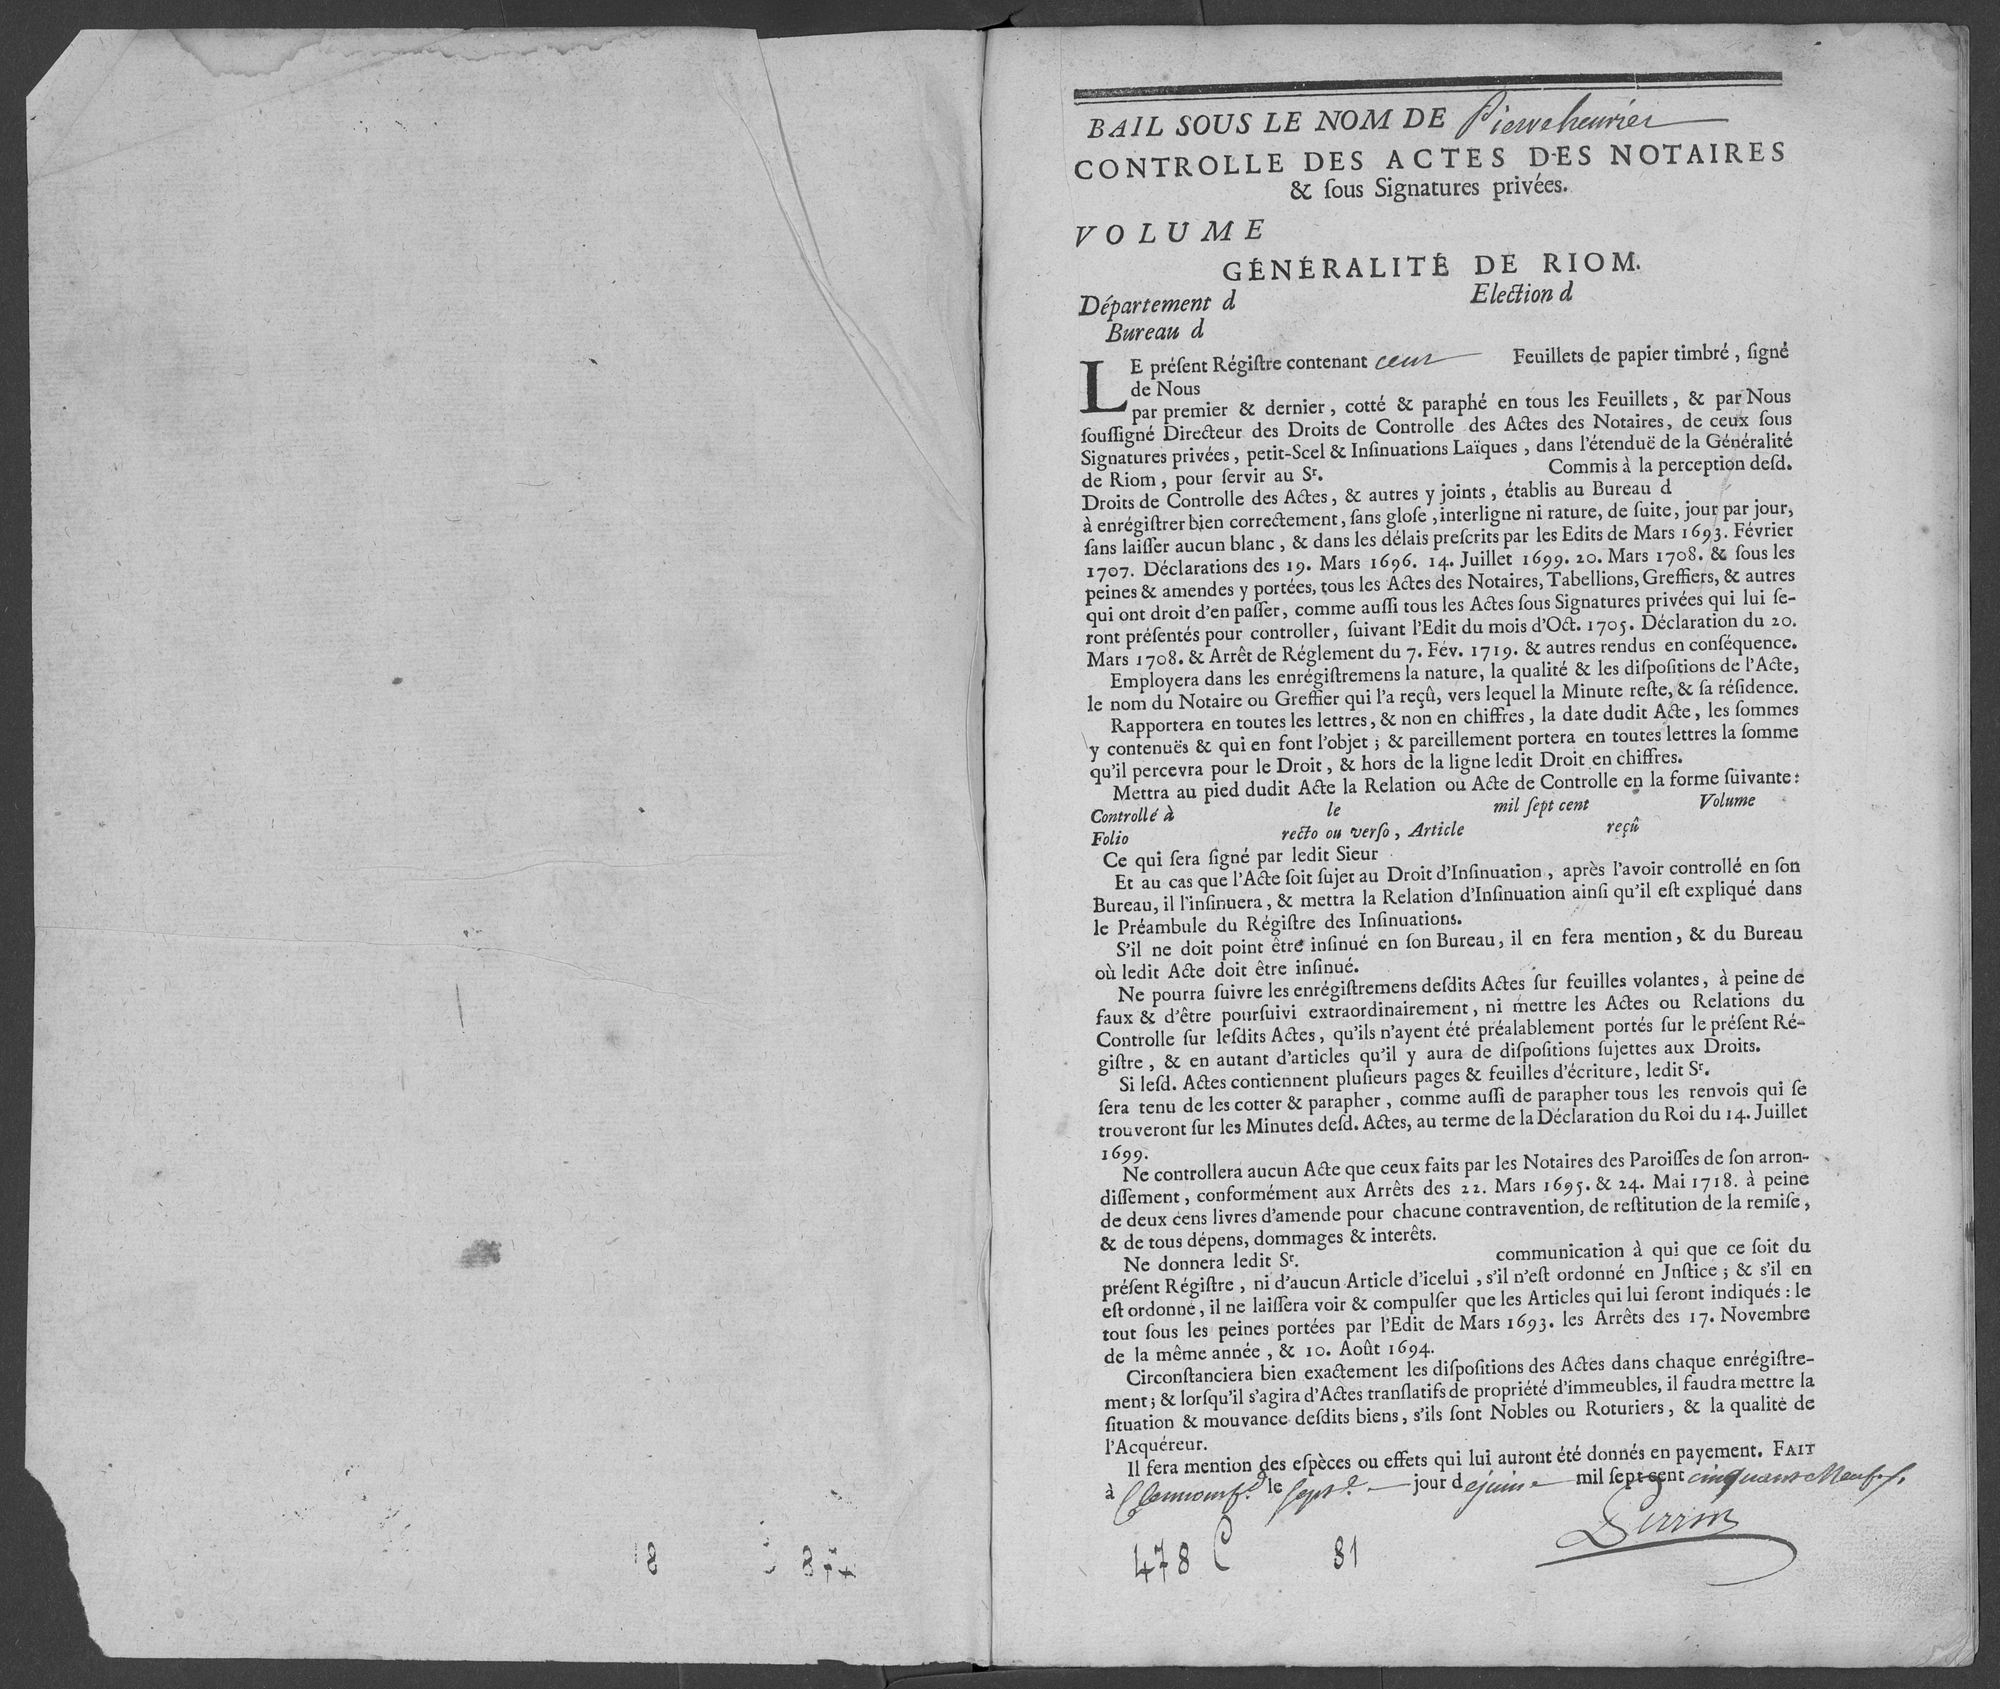 BAIL SOUS LE NOM DE Pierre henrier
CONTROLLE DES ACTES DES NOTAIRES
& ſous Signatures privées.
VOLUME
GÉNÉRALITÉ DE RIOM.
Département d Election d
Bureau d
LE préſent Régiſtre contenant cent Feuillets de papier timbré, ſigné
de Nous
par premier & dernier, cotté & paraphé en tous les Feuillets, & par Nous
ſouſſigné Directeur des Droits de Controlle des Actes des Notaires, de ceux ſous
Signatures privées, petit-Scel & Inſinuations Laïques, dans l'étenduë de la Généralité
de Riom, pour ſervir au Sr. Commis à la perception deſd.
Droits de Controlle des Actes, & autres y joints, établis au Bureau d
à enrégiſtrer bien correctement, ſans gloſe, interligne ni rature, de ſuite, jour par jour,
ſans laiſſer aucun blanc, & dans les délais preſcrits par les Edits de Mars 1693. Février
1707. Déclarations des 19. Mars 1696. 14. Juillet 1699. 20. Mars 1708. & ſous les
peines & amendes y portées, tous les Actes des Notaires, Tabellions, Greffiers, & autres
qui ont droit d'en paſſer, comme auſſi tous les Actes ſous Signatures privées qui lui ſe-
ront préſentés pour controller, ſuivant l'Edit du mois d'Oct. 1705. Déclaration du 20.
Mars 1708. & Arrêt de Réglement du 7. Fév. 1719. & autres rendus en conſéquence.
Employera dans les enrégiſtremens la nature, la qualité & les diſpoſitions de l'Acte,
le nom du Notaire ou Greffier qui l'a reçû, vers lequel la Minute reſte, & ſa réſidence.
Rapportera en toutes les lettres, & non en chiffres, la date dudit Acte, les ſommes
y contenuës & qui en font l'objet; & pareillement portera en toutes lettres la ſomme
qu'il percevra pour le Droit, & hors de la ligne ledit Droit en chiffres.
Mettra au pied dudit Acte la Relation ou Acte de Controlle en la forme ſuivante:
Controllé à le mil ſept cent Volume
Folio recto ou verſo, Article reçû
Ce qui ſera ſigné par ledit Sieur
Et au cas que l'Acte ſoit ſujet au Droit d'Inſinuation, après l'avoir controllé en ſon
Bureau, il l'inſinuera, & mettra la Relation d'Inſinuation ainſi qu'il eſt expliqué dans
le Préambule du Régiſtre des Inſinuations.
S'il ne doit point être inſinué en ſon Bureau, il en fera mention, & du Bureau
où ledit Acte doit être inſinué.
Ne pourra ſuivre les enrégiſtremens deſdits Actes ſur feuilles volantes, à peine de
faux & d'être pourſuivi extraordinairement, ni mettre les Actes ou Relations du
Controlle ſur leſdits Actes, qu'ils n'ayent été préalablement portés ſur le préſent Ré-
giſtre, & en autant d'articles qu'il y aura de diſpoſitions ſujettes aux Droits.
Si leſd. Actes contiennent pluſieurs pages & feuilles d'écriture, ledit Sr.
ſera tenu de les cotter & parapher, comme auſſi de parapher tous les renvois qui ſe
trouveront ſur les Minutes deſd. Actes, au terme de la Déclaration du Roi du 14. Juillet
1699.
Ne controllera aucun Acte que ceux faits par les Notaires des Paroiſſes de ſon arron-
diſſement, conformément aux Arrêts des 22. Mars 1695. & 24. Mai 1718. à peine
de deux cens livres d'amende pour chacune contravention, de reſtitution de la remiſe,
& de tous dépens, dommages & interêts.
Ne donnera ledit Sr. communication à qui que ce ſoit du
préſent Régiſtre, ni d'aucun Article d'icelui, s'il n'eſt ordonné en Juſtice; & s'il en
eſt ordonné, il ne laiſſera voir & compulſer que les Articles qui lui ſeront indiqués: le
tout ſous les peines portées par l'Edit de Mars 1693. les Arrêts des 17. Novembre
de la même année, & 10. Août 1694.
Circonſtanciera bien exactement les diſpoſitions des Actes dans chaque enrégiſtre-
ment; & lorſqu'il s'agira d'Actes tranſlatifs de propriété d'immeubles, il faudra mettre la
ſituation & mouvance deſdits biens, s'ils ſont Nobles ou Roturiers, & la qualité de
l'Acquéreur.
Il fera mention des eſpèces ou effets qui lui auront été donnés en payement. FAIT
à Clermont fd. le sept jour de juin mil ſept cent cinquante Neuf
Perrin
478 C 81